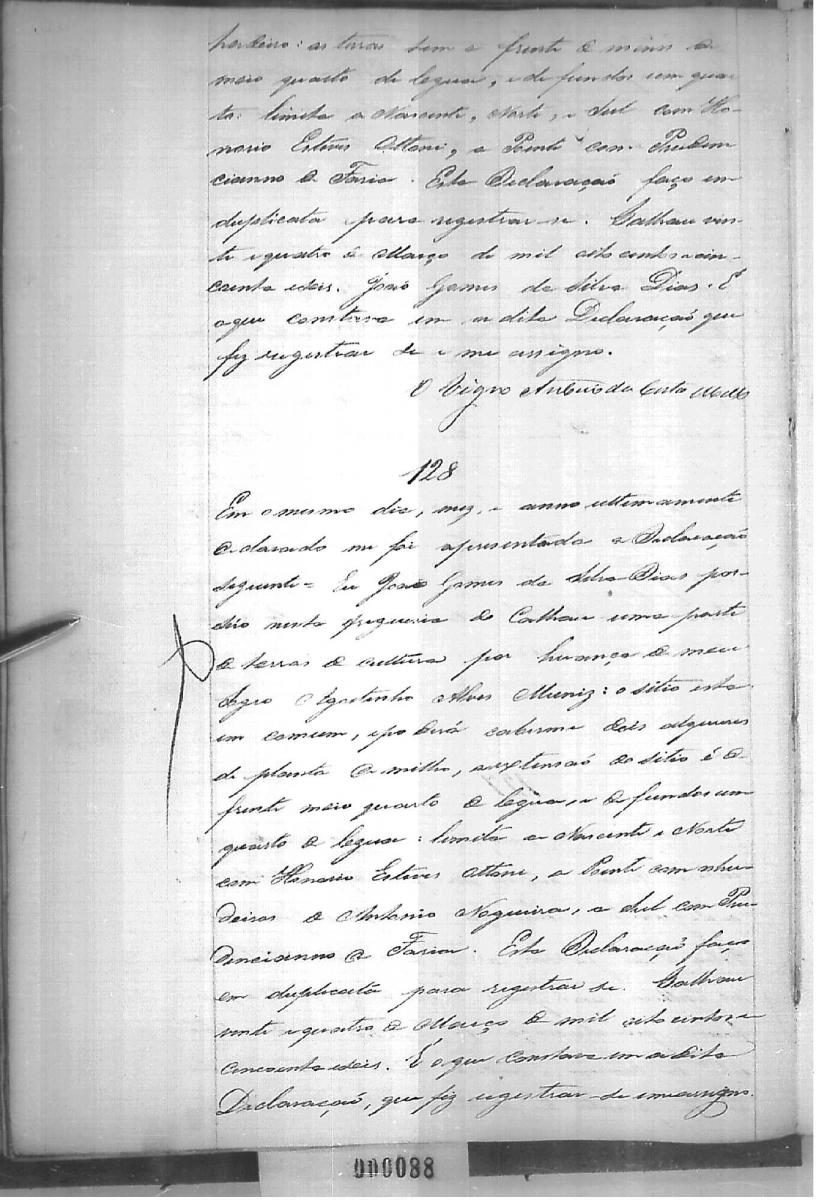 herdeiro: as terras tem a frente de menos de
meio quarto de legua, e de fundos um quar
to: limita a Nascente, Norte, e Sul com Ho-
norio Esteves Ottoni, a Poente com Pruden
cianno de Faria. Esta Declaração faço em
duplicata para registrar-se. Calhau vin-
te e quatro de Março de mil oito centos e cin-
coenta e seis. João Gomes da Silva Dias. É
o que constava em a dita Declaração que
fiz registrar de e me assigno.
O Vigro Antonio da Costa
128
Em o mesmo dia, mez, e anno ultimamente
declarado me foi apresentada a Declaração
seguinte = Eu João Gomes da Silva Dias
nesta freguezia do Calhau uma parte
de terras de cultura por herança de meu
Sogro Agostinho Alves Muniz: o sitio esta
em comum, e poderá caberme dois alqueires
de planta de milho, a extensaõ do sitio é de
frente meio quarto de legua, e de fundos um
quarto de legua: limita a Nascente e Norte
com Honorio Esteves Ottoni, a Poente com o her
deiros de Antonio Nogueira, e Sul com Pru
dencianno de Faria. Esta Declaração faço
em duplicata para registrar se. Calhau
vinte e quatro de Março de mil oito centos e
cincoenta e seis. É o que constava em a dita
Declaração, que fiz registrar de e me assigno.
000088